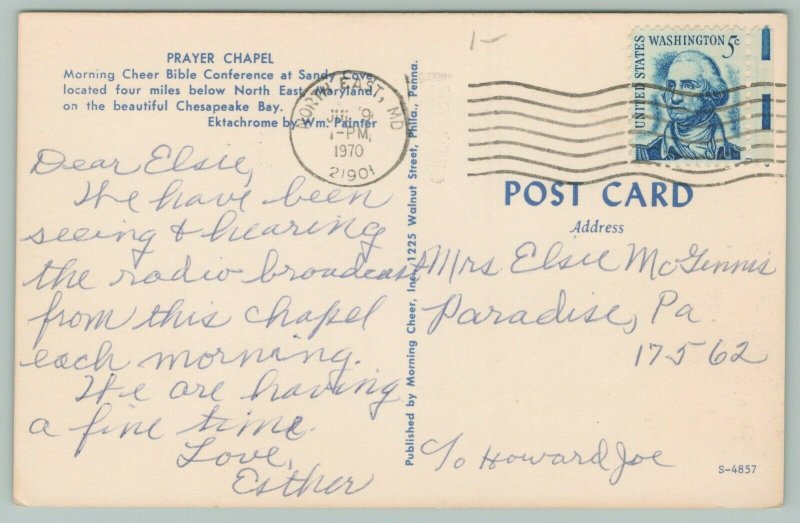 PRAYER CHAPEL
Morning Cheer Bible Conference at Sandy Cove,
located four miles below North East, Maryland,
on the beautiful Chesapeake Bay.
Ektachrome by Wm. Painter
Dear Elsie,
We have been
seeing & hearing
the radio broadcast
from this chapel
each morning.
We are having
a fine time.
Love,
Esther
Published by Morning Cheer, Inc., 1225 Walnut Street, Phila., Penna.
1-
NORTH EAST, MD
9
1-PM
1970
21901
UNITED STATES
WASHINGTON 5c
POST CARD
Address
Mrs Elsie McGinnis
Paradise, Pa.
17562
c/o Howard Joe
S-4857